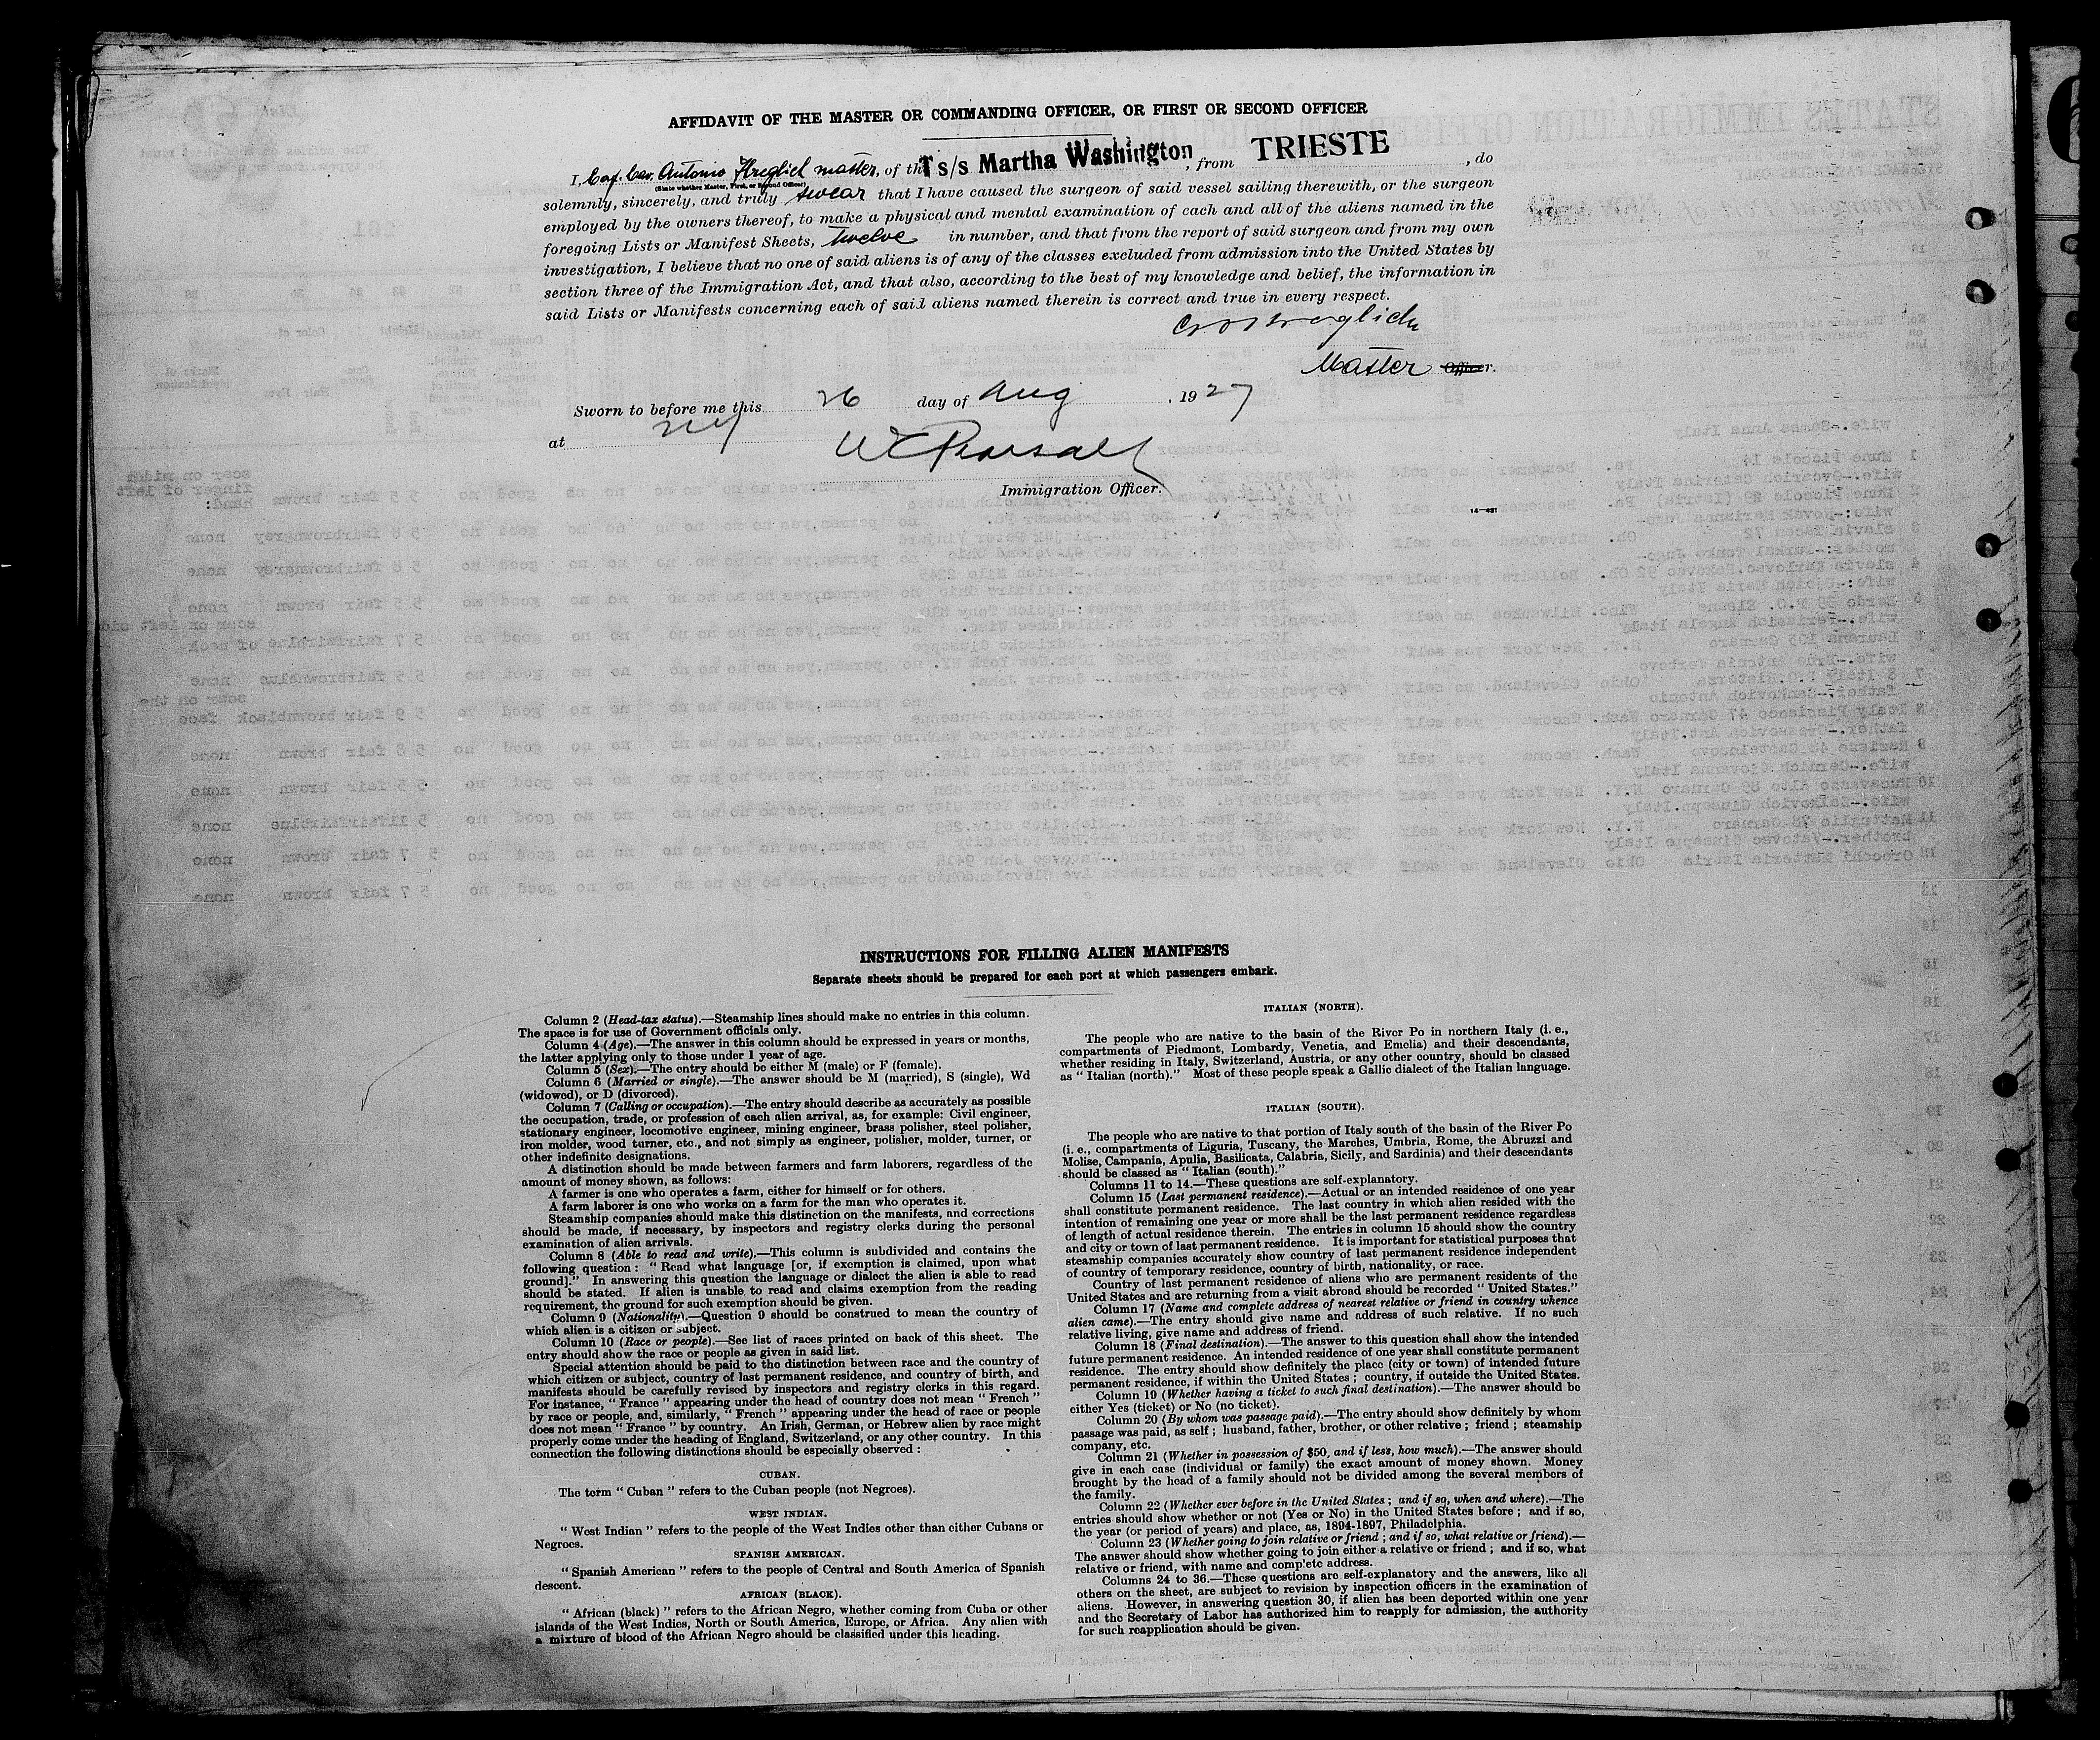 AFFIDAVIT OF THE MASTER OR COMMANDING OFFICER, OR FIRST OR SECOND OFFICER
I, Cap. Cav. Antonio master, of the T s/s Martha Washington, from TRIESTE, do
(State whether Master, First, or Second Officer)
solemnly, sincerely, and truly swear that I have caused the surgeon of said vessel sailing therewith, or the surgeon
employed by the owners thereof, to make a physical and mental examination of each and all of the aliens named in the
foregoing Lists or Manifest Sheets, twelve in number, and that from the report of said surgeon and from my own
investigation, I believe that no one of said aliens is of any of the classes excluded from admission into the United States by
section three of the Immigration Act, and that also, according to the best of my knowledge and belief, the information in
said Lists or Manifests concerning each of said aliens named therein is correct and true in every respect.
Master Officer.
Sworn to before me this 26 day of Aug, 1927
at NY
Immigration Officer.
14-421
INSTRUCTIONS FOR FILLING ALIEN MANIFESTS
Separate sheets should be prepared for each port at which passengers embark.
Column 2 (Head-tax status).—Steamship lines should make no entries in this column.
The space is for use of Government officials only.
Column 4 (Age).—The answer in this column should be expressed in years or months,
the latter applying only to those under 1 year of age.
Column 5 (Sex).—The entry should be either M (male) or F (female).
Column 6 (Married or single).—The answer should be M (married), S (single), Wd
(widowed), or D (divorced).
Column 7 (Calling or occupation).—The entry should describe as accurately as possible
the occupation, trade, or profession of each alien arrival, as, for example: Civil engineer,
stationary engineer, locomotive engineer, mining engineer, brass polisher, steel polisher,
iron molder, wood turner, etc., and not simply as engineer, polisher, molder, turner, or
other indefinite designations.
A distinction should be made between farmers and farm laborers, regardless of the
amount of money shown, as follows:
A farmer is one who operates a farm, either for himself or for others.
A farm laborer is one who works on a farm for the man who operates it.
Steamship companies should make this distinction on the manifests, and corrections
should be made, if necessary, by inspectors and registry clerks during the personal
examination of alien arrivals.
Column 8 (Able to read and write).—This column is subdivided and contains the
following question: "Read what language [or, if exemption is claimed, upon what
ground]." In answering this question the language or dialect the alien is able to read
should be stated. If alien is unable to read and claims exemption from the reading
requirement, the ground for such exemption should be given.
Column 9 (Nationality).—Question 9 should be construed to mean the country of
which alien is a citizen or subject.
Column 10 (Race or people).—See list of races printed on back of this sheet. The
entry should show the race or people as given in said list.
Special attention should be paid to the distinction between race and the country of
which citizen or subject, country of last permanent residence, and country of birth, and
manifests should be carefully revised by inspectors and registry clerks in this regard.
For instance, "France" appearing under the head of country does not mean "French"
by race or people, and, similarly, "French" appearing under the head of race or people
does not mean "France" by country. An Irish, German, or Hebrew alien by race might
properly come under the heading of England, Switzerland, or any other country. In this
connection the following distinctions should be especially observed:
CUBAN.
The term "Cuban" refers to the Cuban people (not Negroes).
WEST INDIAN.
"West Indian" refers to the people of the West Indies other than either Cubans or
Negroes.
SPANISH AMERICAN.
"Spanish American" refers to the people of Central and South America of Spanish
descent.
AFRICAN (BLACK).
"African (black)" refers to the African Negro, whether coming from Cuba or other
islands of the West Indies, North or South America, Europe, or Africa. Any alien with
a mixture of blood of the African Negro should be classified under this heading.
ITALIAN (NORTH).
The people who are native to the basin of the River Po in northern Italy (i. e.,
compartments of Piedmont, Lombardy, Venetia, and Emelia) and their descendants,
whether residing in Italy, Switzerland, Austria, or any other country, should be classed
as "Italian (north)." Most of these people speak a Gallic dialect of the Italian language.
ITALIAN (SOUTH).
The people who are native to that portion of Italy south of the basin of the River Po
(i. e., compartments of Liguria, Tuscany, the Marches, Umbria, Rome, the Abruzzi and
Molise, Campania, Apulia, Basilicata, Calabria, Sicily, and Sardinia) and their descendants
should be classed as "Italian (south)."
Columns 11 to 14.—These questions are self-explanatory.
Column 15 (Last permanent residence).—Actual or an intended residence of one year
shall constitute permanent residence. The last country in which alien resided with the
intention of remaining one year or more shall be the last permanent residence regardless
of length of actual residence therein. The entries in column 15 should show the country
and city or town of last permanent residence. It is important for statistical purposes that
steamship companies accurately show country of last permanent residence independent
of country of temporary residence, country of birth, nationality, or race.
Country of last permanent residence of aliens who are permanent residents of the
United States and are returning from a visit abroad should be recorded "United States."
Column 17 (Name and complete address of nearest relative or friend in country whence
alien came).—The entry should give name and address of such relative. If no such
relative living, give name and address of friend.
Column 18 (Final destination).—The answer to this question shall show the intended
future permanent residence. An intended residence of one year shall constitute permanent
residence. The entry should show definitely the place (city or town) of intended future
permanent residence, if within the United States; country, if outside the United States.
Column 19 (Whether having a ticket to such final destination).—The answer should be
either Yes (ticket) or No (no ticket).
Column 20 (By whom was passage paid).—The entry should show definitely by whom
passage was paid, as self; husband, father, brother, or other relative; friend; steamship
company, etc.
Column 21 (Whether in possession of $50, and if less, how much).—The answer should
give in each case (individual or family) the exact amount of money shown. Money
brought by the head of a family should not be divided among the several members of
the family.
Column 22 (Whether ever before in the United States; and if so, when and where).—The
entries should show whether or not (Yes or No) in the United States before; and if so,
the year (or period of years) and place, as, 1894-1897, Philadelphia.
Column 23 (Whether going to join relative or friend; and if so, what relative or friend).—
The answer should show whether going to join either a relative or friend; and if so, what
relative or friend, with name and complete address.
Columns 24 to 36.—These questions are self-explanatory and the answers, like all
others on the sheet, are subject to revision by inspection officers in the examination of
aliens. However, in answering question 30, if alien has been deported within one year
and the Secretary of Labor has authorized him to reapply for admission, the authority
for such reapplication should be given.